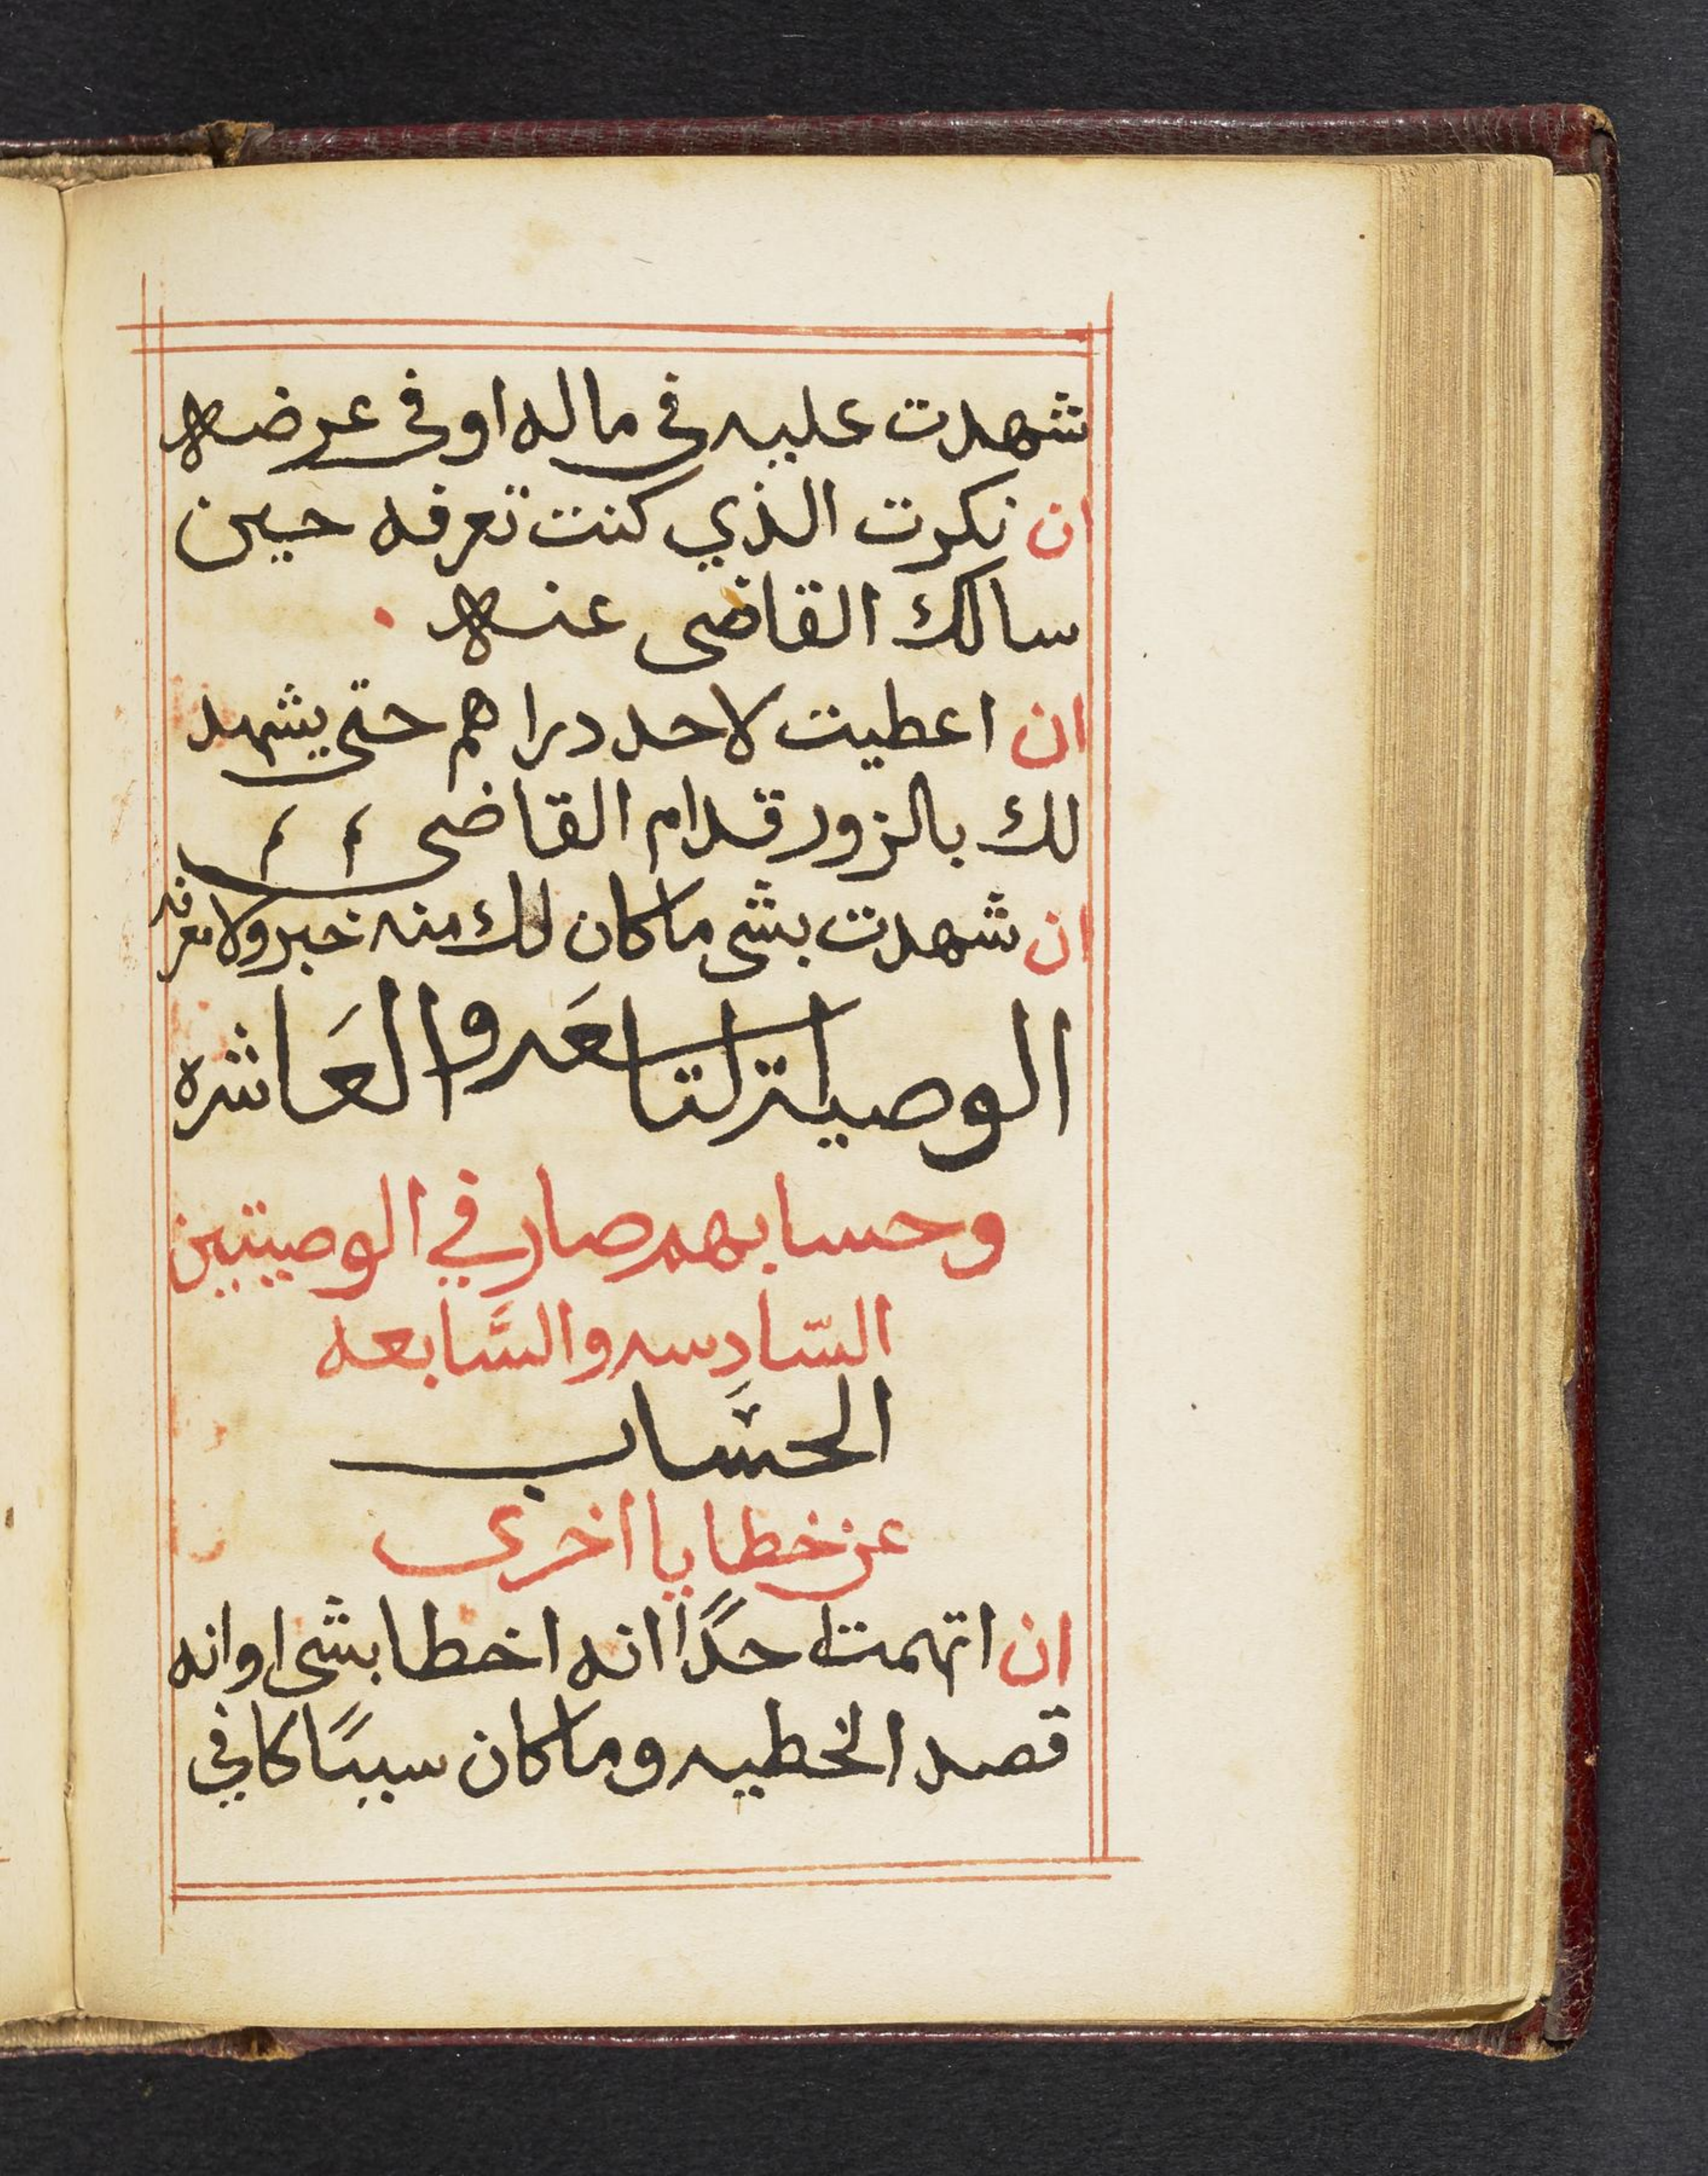 شهدت عليه في ماله او في عرضه
ان نكرت الذي كنت تعرفه حين
سالك القاضى عنه
ان اعطيت لاحد دراهم حتى يشهد
لك بالزور قدام القاضى
ان شهدت بشى ما كان لك منه خبر ولا معرفه
الوصية التاسعَه والعَاشره
وحسابهم صار في الوصيتين
السّادسه والسَّابعه
الحسَاب
عن خطايا اخرى
ان اتهمت احدًا انه اخطا بشى او انه
قصد الخطيه وما كان سببًا كافي